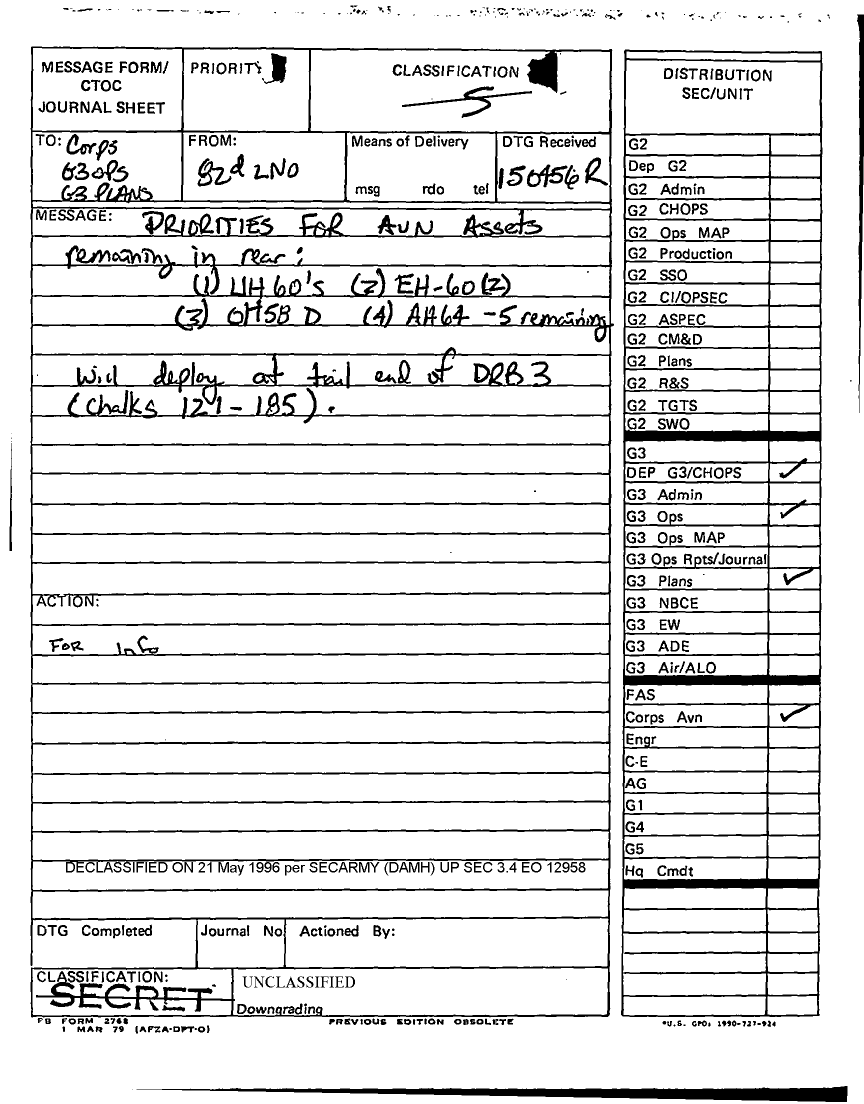 MESSAGE FORM/
CTOC
JOURNAL SHEET
PRIORITY
CLASSIFICATION
S
TO: Corps
G3 OPS
G3 PLANS
FROM:
82d LNO
Means of Delivery
msg rdo tel
DTG Received
150456R
MESSAGE: PRIORITIES FOR AVN Assets
remaining in rear:
(1) UH60's (2) EH-60(2)
(3) OH58 D (4) AH64 -5 remaining
Will deploy at tail end of DRB 3
(Chalks 121-185).
ACTION:
FOR Info
DECLASSIFIED ON 21 May 1996 per SECARMY (DAMH) UP SEC 3.4 EO 12958
DTG Completed
Journal No
Actioned By:
CLASSIFICATION:
SECRET
UNCLASSIFIED
Downgrading
FB FORM 2768
1 MAR 79 (AFZA-DPT-O)
PREVIOUS EDITION OBSOLETE
DISTRIBUTION
SEC/UNIT
G2
Dep G2
G2 Admin
G2 CHOPS
G2 Ops MAP
G2 Production
G2 SSO
G2 CI/OPSEC
G2 ASPEC
G2 CM&D
G2 Plans
G2 R&S
G2 TGTS
G2 SWO
G3
DEP G3/CHOPS ✓
G3 Admin
G3 Ops ✓
G3 Ops MAP
G3 Ops Rpts/Journal
G3 Plans ✓
G3 NBCE
G3 EW
G3 ADE
G3 Air/ALO
FAS
Corps Avn ✓
Engr
C-E
AG
G1
G4
G5
Hq Cmdt
*U.S. GPO: 1990-727-924